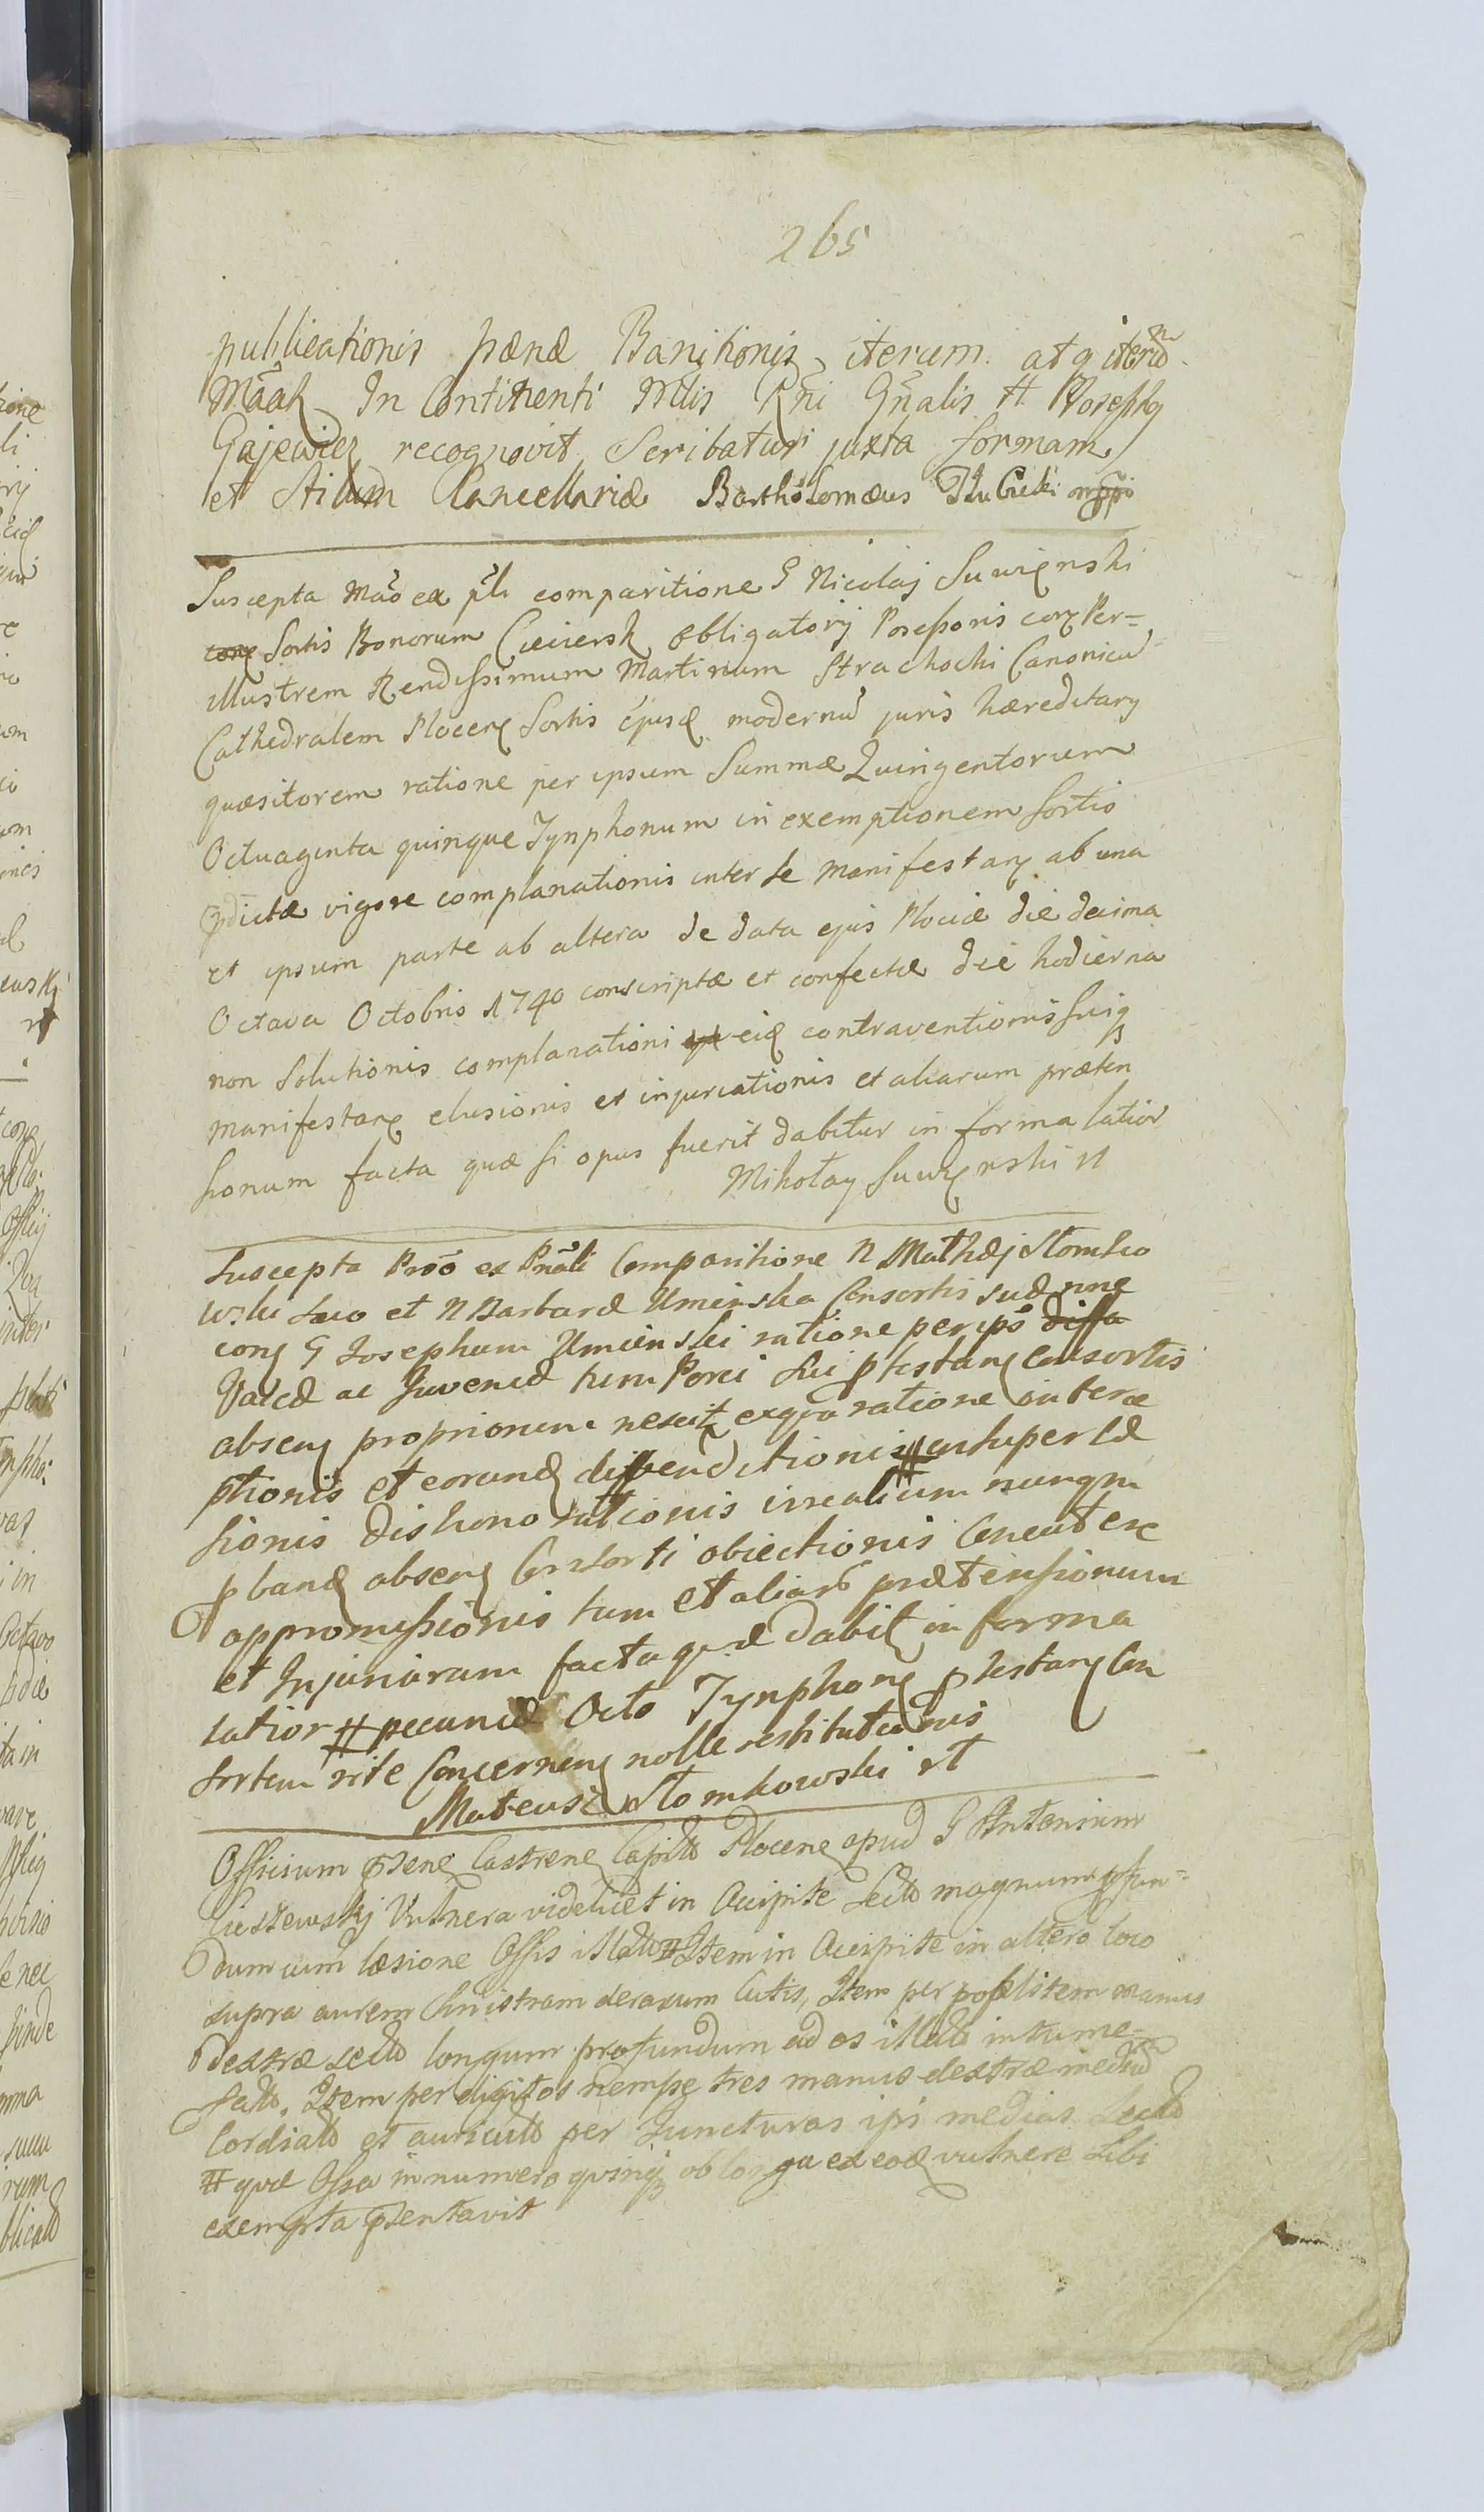 265
publicationis pænæ Banitionis iterum atq iterũ
In Continenti Mtlis Rñi Gñalis H Josephg
Gajewicz recognovit Scribatur juxta formam
et Stilum Cancellariæ Bartholomæus
Suscepta Mãõ ex pli comparitione G Nicolaj Suwinski
Sortis Bonorum obligatorij Poseßoris con Per=
illustrem Rendissimum Martinum Strachocki Canonicũ
Cathedralem Plocen Sortis ejusd modernũ juris hæreditary
quæsitorem ratione per ipsum Summæ Quingentorum
Octuaginta quinque Tynphonum in exemptionem Sortis
pdictæ vigore complanationis inter se manifestan ab una
et ipsum parte ab altera de data ejus Plociæ die decima
Octava Octobris 1740 conscriptæ et confectæ die hodierna
non Solutionis complanationi eid contraventionis suiq
manifestan elusionis et injuriationis et aliarum præten
sionum facta quæ si opus fuerit dabitur in forma latior
Mikołay Suwinski
Suscepta Prõ ex Pnali Comparitione N Mathæj Słomko
wski suo et N Barbaræ Uminska Consortis suæ nne
con G Josephum Umienski ratione per ips
Juvencæ tum Porci sui ptestan Consortis
absen proprionum nescit exqua ratione interce
ptionis et eorund divenditionis # insuper
sionis dishonorationis irrealium nunqm
pband absen Consorti obiectionis
appromissionis tum et aliarũ prætensionum
et Injuriarum facta quæ dabit in forma
latior # pecuniæ Octo Tynphon ptestan Con
sortem rite Concernen nolle restitutionis
Mateusz Słomkowski
Officium psens Castrens Capitle Plocens apud G Antonium
Ciestewskij Vulnera videlicet in Occipite Sectũ magnum pfun=
dum cum læsione Ossis illatũ # Item in Occipite in altero loco
supra aurem Sinistram derasum Cutis, Item per poplitem manus
dextræ sectũ longum profundum ad os illatũ intume-
factũ, Item per digitos nempe tres manus dextræ mediũ
Cordialũ et auriculũ per Juncturas ipi medias Sectũ
# quæ Ossa in numero quinq oblonga ex eod vulnere Sibi
exempta psentavit